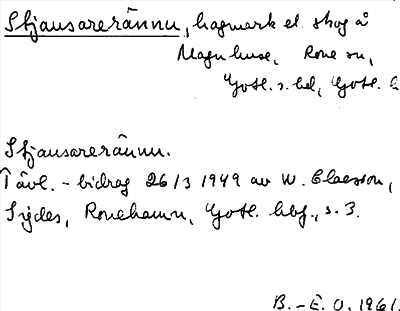 Stjausarerännu, hagmark el. skog å
Magnhuse, Rone sn,
Gotl. s. hd, Gotl. l
Stjausarerännu.
Tävl. - bidrag 26/3 1949 av W. Claesson,
Sigdes, Ronehamn, Gotl. hbf., s. 3.
B. - E. O. 1961.